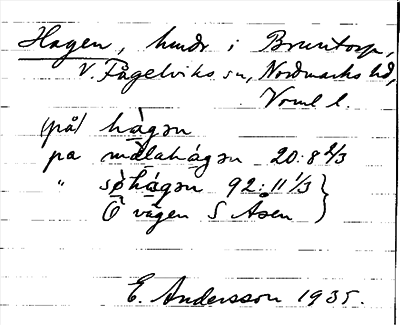 Hagen, hmdr i Bruntorp,
V. Fågelviks sn, Nordmarks hd,
Vrml l.
(på) hàgən
pa mòlahágən 20:8 2/3
" sǿhágən 92:11 1/3
Ö vägen S Åsen
E. Andersson 1935.